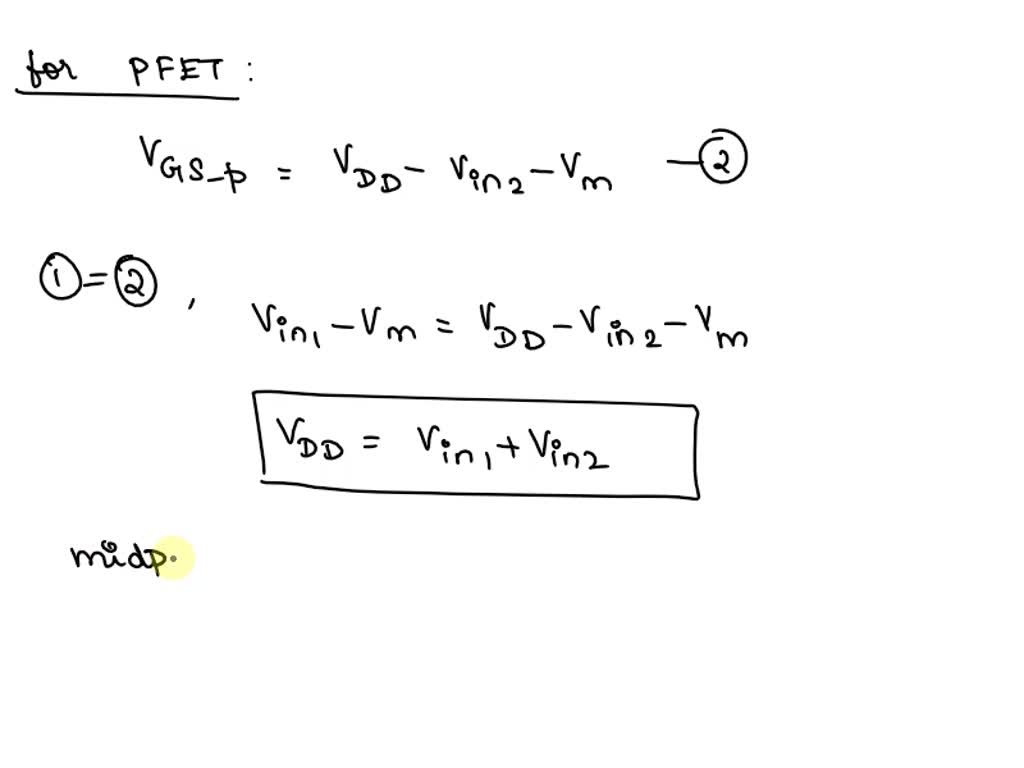 for PFET :
VGS_p = VDD - Vin2 - Vm — 2
1 = 2 , Vin1 - Vm = VDD - Vin2 - Vm
VDD = Vin1 + Vin2
midp